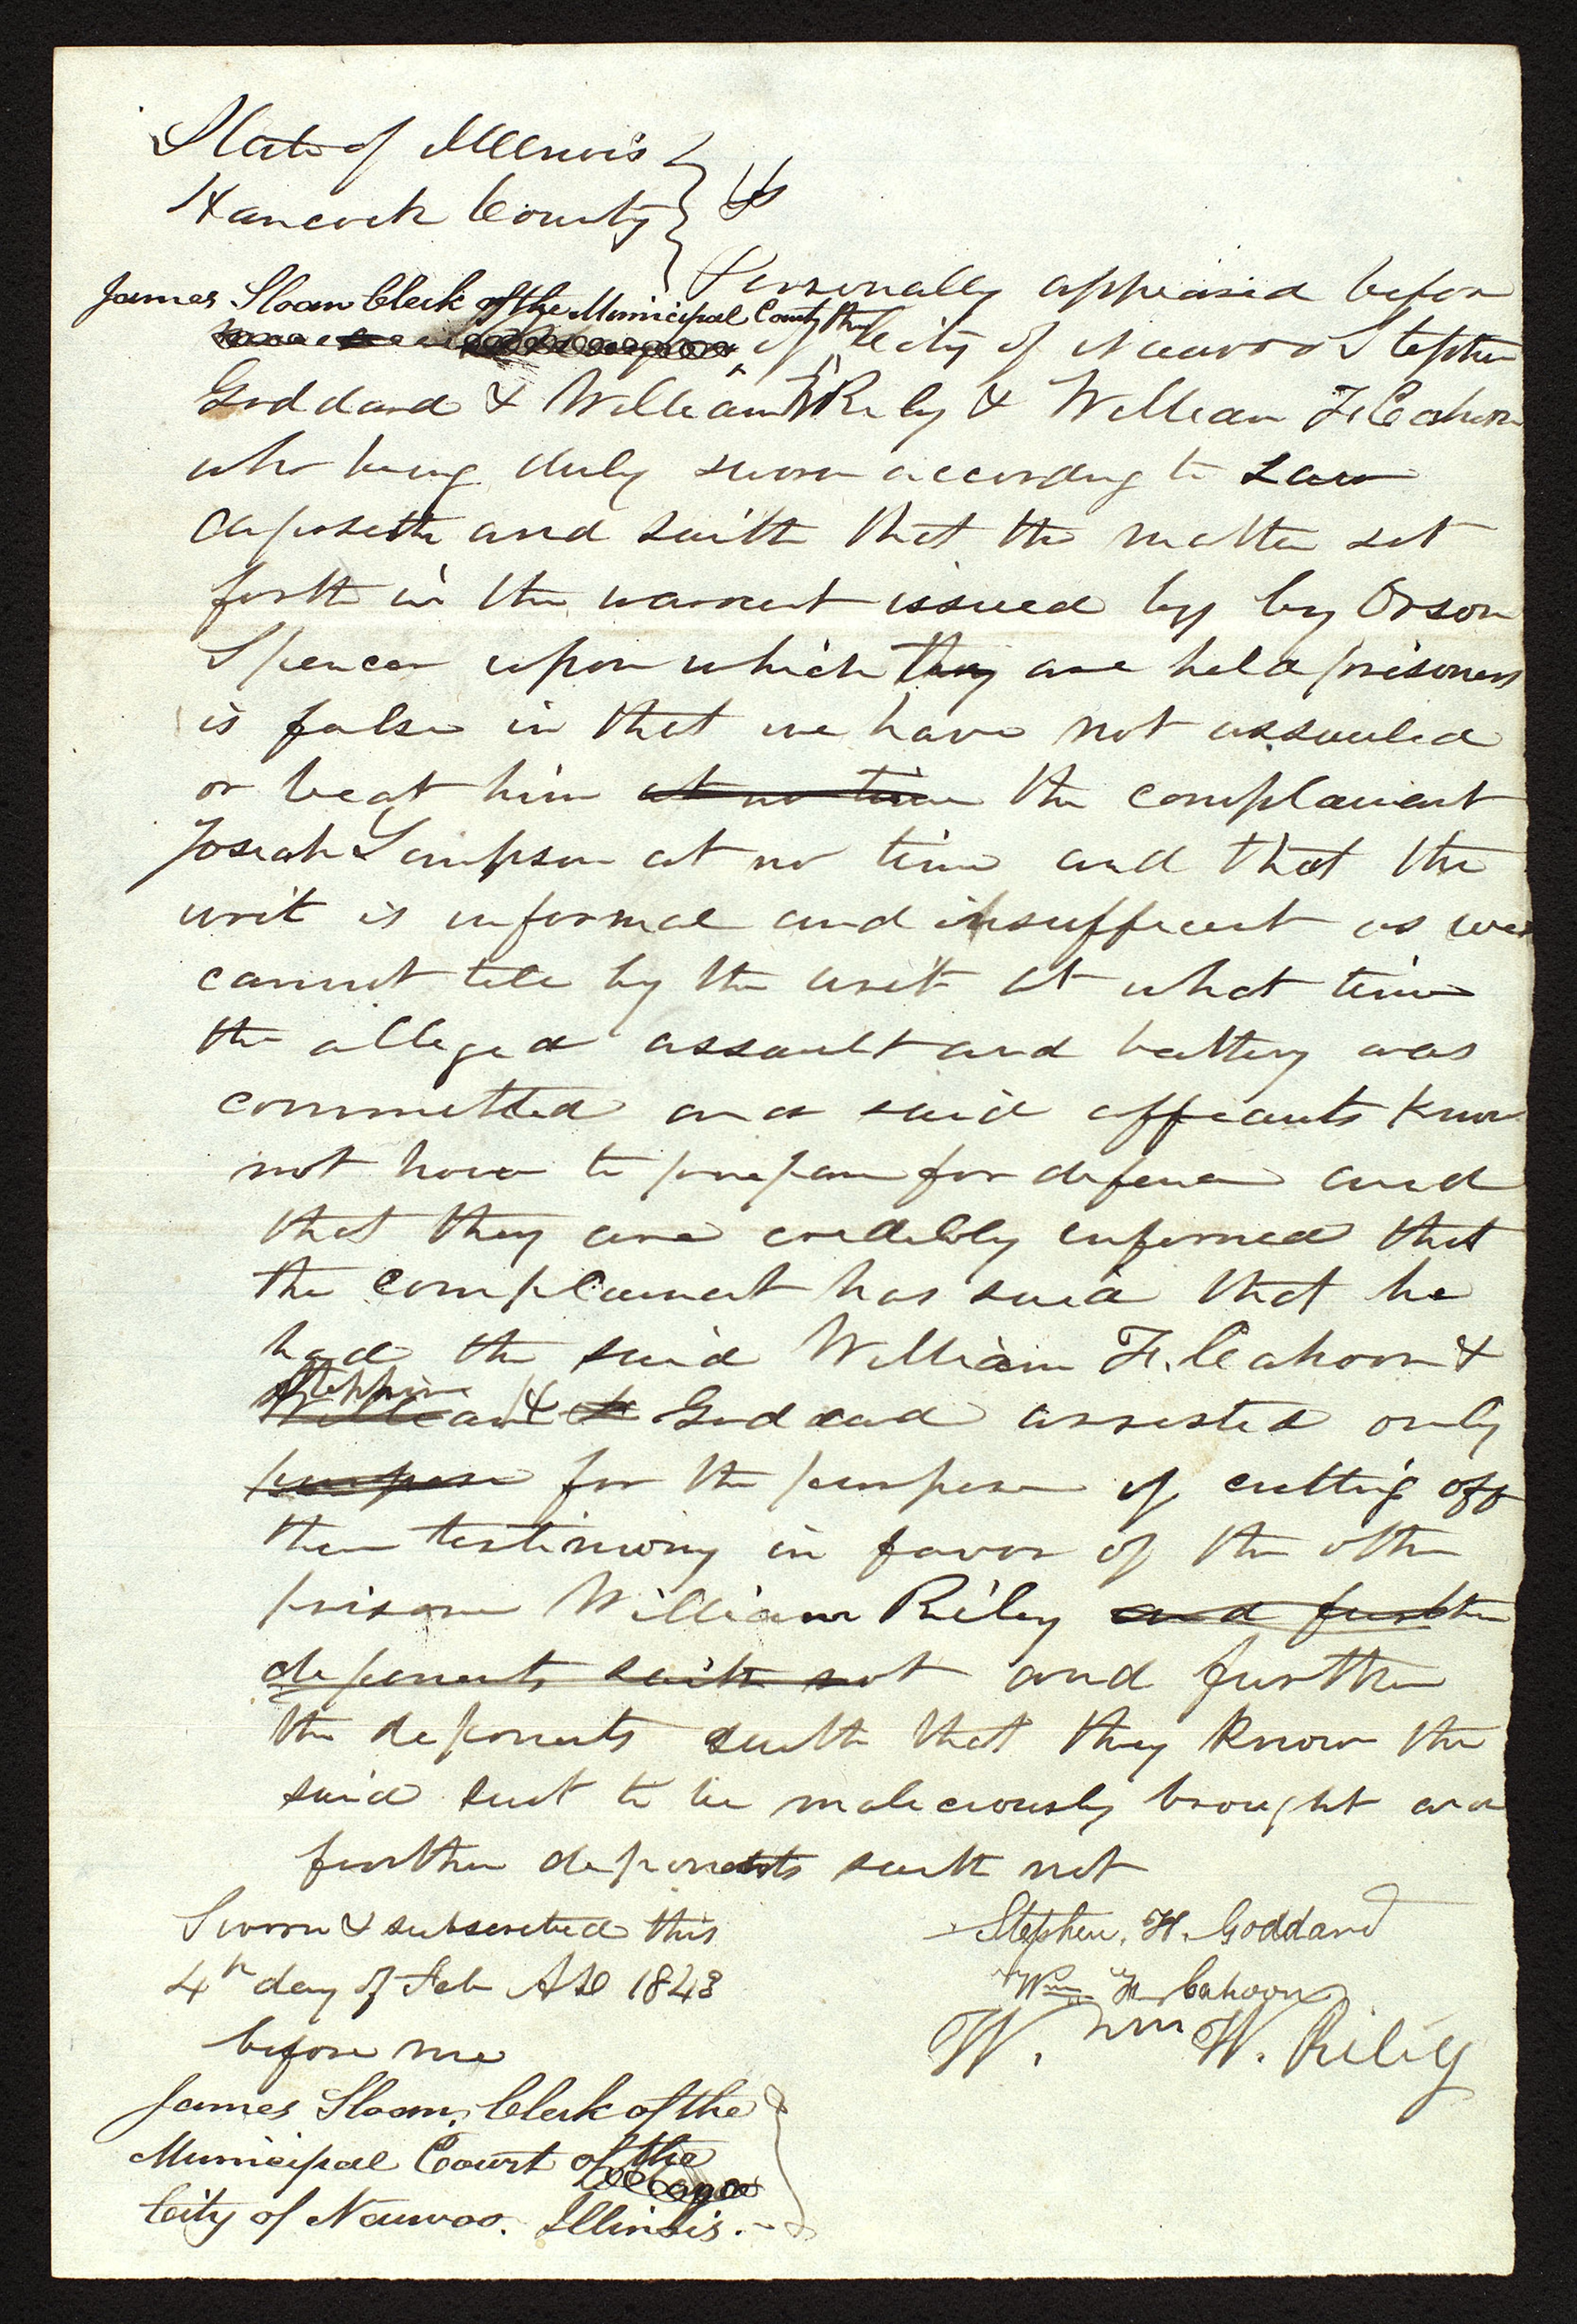 State of Illinois
Hancock County } SS
Personally appeared before
James Sloan Clerk of the Municipal County the
of City of Nauvoo Stephen
Goddard & William W Riley & William F. Cahoon
who being duly sworn according to Law
deposeth and saith that the matter set
forth in the warrent issued by by Orson
Spencer upon which they are held prisoners
is false in that we have not assauled
or beat him at no time the complainant
Josiah Simpson at no time and that the
writ is informal and insufficent as we
cannot tell by the writ at what time
the alleged assault and battery was
committed and said affiants know
not how to prepare for defence and
that they are credibly informed that
the complainant has said that he
had the said William F. Cahoon &
Stephen
William H Goddard arrested only
purpose for the purpose of cutting off
their testimony in favor of the other
prisoner William Riley and further
deponents saith not and further
the deponents saith that they know the
said suit to be maleciously brought and
further deponents saith not
Sworn & subscribed this
4th day of Feb AD 1843
before me
James Sloan, Clerk of the
Municipal Court of the
City of Nauvoo. Illinois.
Stephen. H. Goddard
Wm F. Cahoon
W. Wm W. Riley